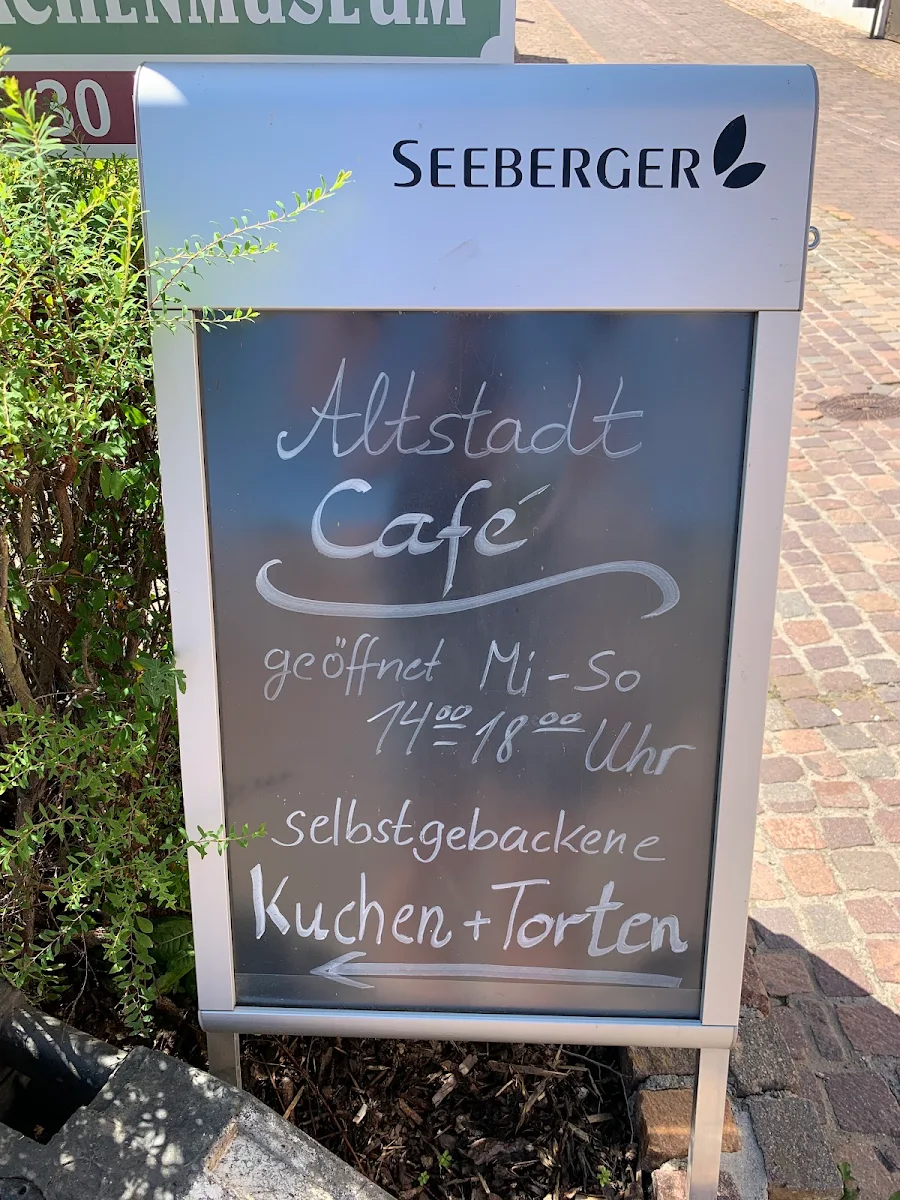 MUSEUM
30
SEEBERGER
Altstadt
Café
geöffnet Mi - So
14⁰⁰ 18⁰⁰ Uhr
selbstgebackene
Kuchen + Torten